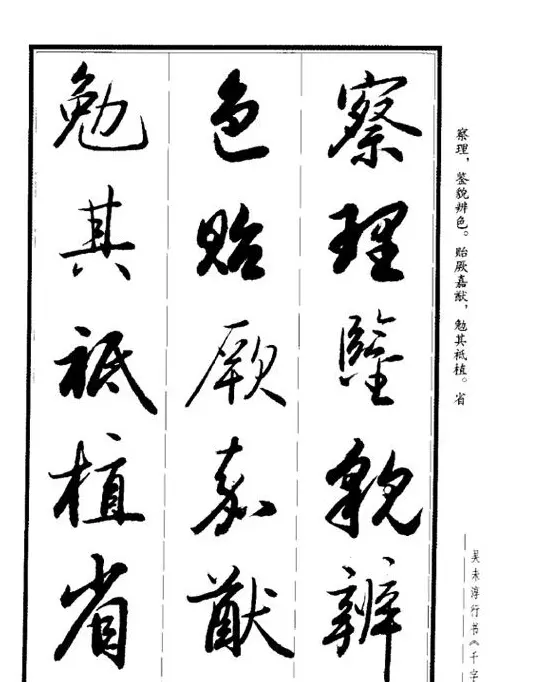 察理鑒貌辨
色貽厥嘉猷
勉其祗植省
察理，鉴貌辨色。贻厥嘉猷，勉其祗植。省
吴未淳行书《千字